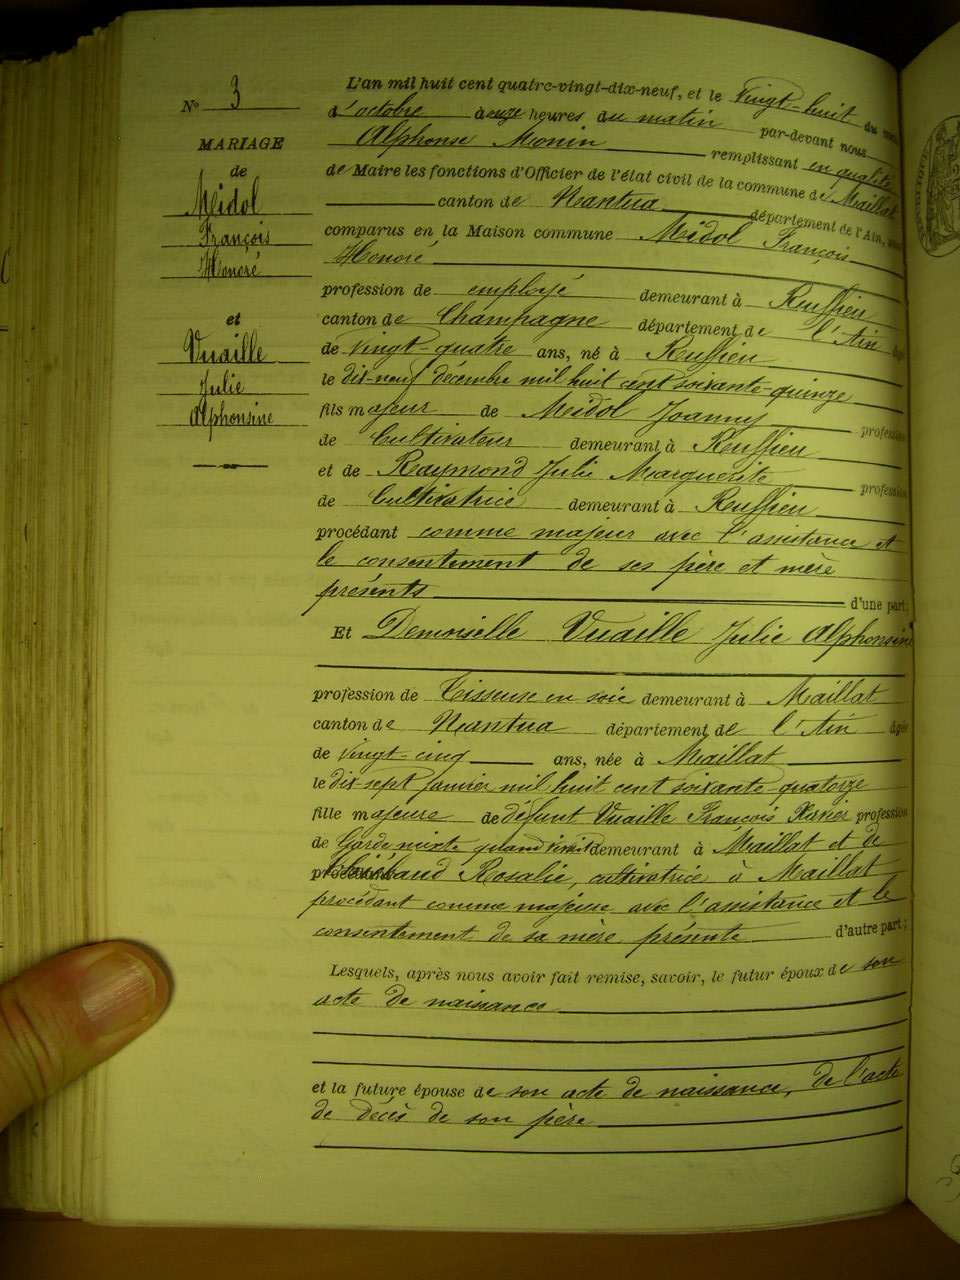 N° 3
MARIAGE
de
Midol
François
Honoré
et
Vuaille
Julie
Alphonsine
L'an mil huit cent quatre-vingt-dix-neuf, et le vingt-huit du mois
d'octobre à onze heures du matin par-devant nous
Alphonse Monin remplissant en qualité
de Maire les fonctions d'Officier de l'état civil de la commune de Maillat
canton de Nantua département de l'Ain,
comparus en la Maison commune Midol François
Honoré
profession de employé demeurant à Ruffieu
canton de Champagne département de l'Ain âgé
de vingt-quatre ans, né à Ruffieu
le dix-neuf décembre mil huit cent soixante-quinze
fils majeur de Midol Joanny profession
de Cultivateur demeurant à Ruffieu
et de Raymond Julie Marguerite profession
de Cultivatrice demeurant à Ruffieu
procédant comme majeur avec l'assistance et
le consentement de ses père et mère
présents d'une part;
Et Demoiselle Vuaille Julie Alphonsine
profession de Tisseuse en soie demeurant à Maillat
canton de Nantua département de l'Ain âgée
de vingt-cinq ans, née à Maillat
le dix-sept janvier mil huit cent soixante-quatorze
fille majeure de défunt Vuaille François Xavier profession
de Garde mixte quand vivait demeurant à Maillat et de
Rosalie, cultivatrice à Maillat
procédant comme majeure avec l'assistance et le
consentement de sa mère présente d'autre part;
Lesquels, après nous avoir fait remise, savoir, le futur époux de son
acte de naissance
et la future épouse de son acte de naissance, de l'acte
de décès de son père